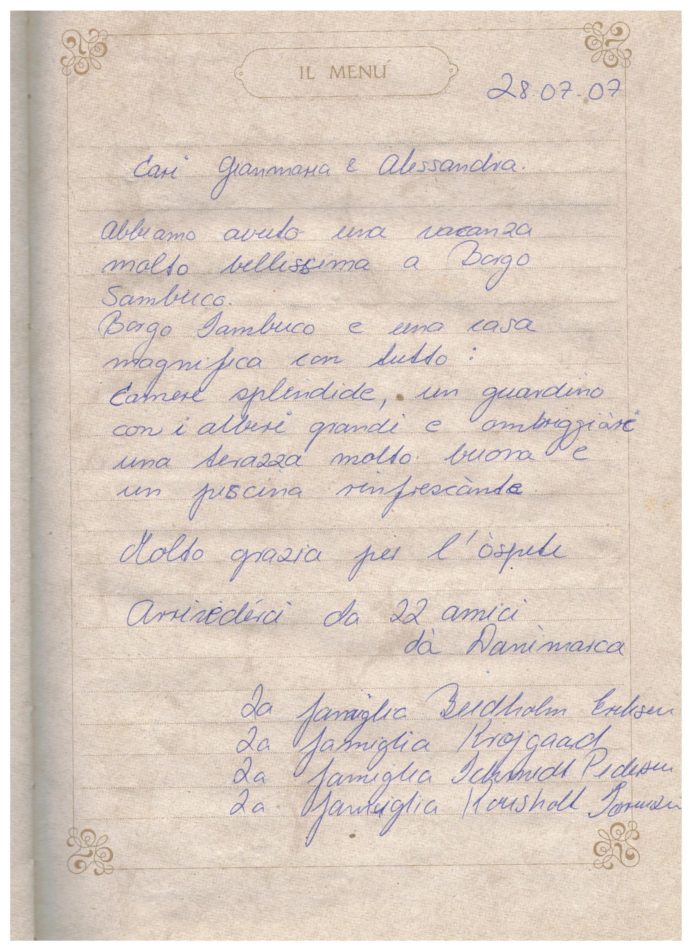 IL MENÚ
28.07.07
Cari Gianmaria e Alessandra.
Abbiamo avuto una vacanza
molto bellissima a Borgo
Sambuco.
Borgo Sambuco e una casa
magnifica con tutto:
Camere splendide, un guardino
con i alberi grandi e ombriggiare
una terazza molto buona e
un piscina rinfrescànte
Molto grazia per l'òspite
Arrivedérci da 22 amici
dà Danimarca
La famiglia Erelsen
La famiglia Krojgaad
La famiglia Schmidt Pedersen
La famiglia